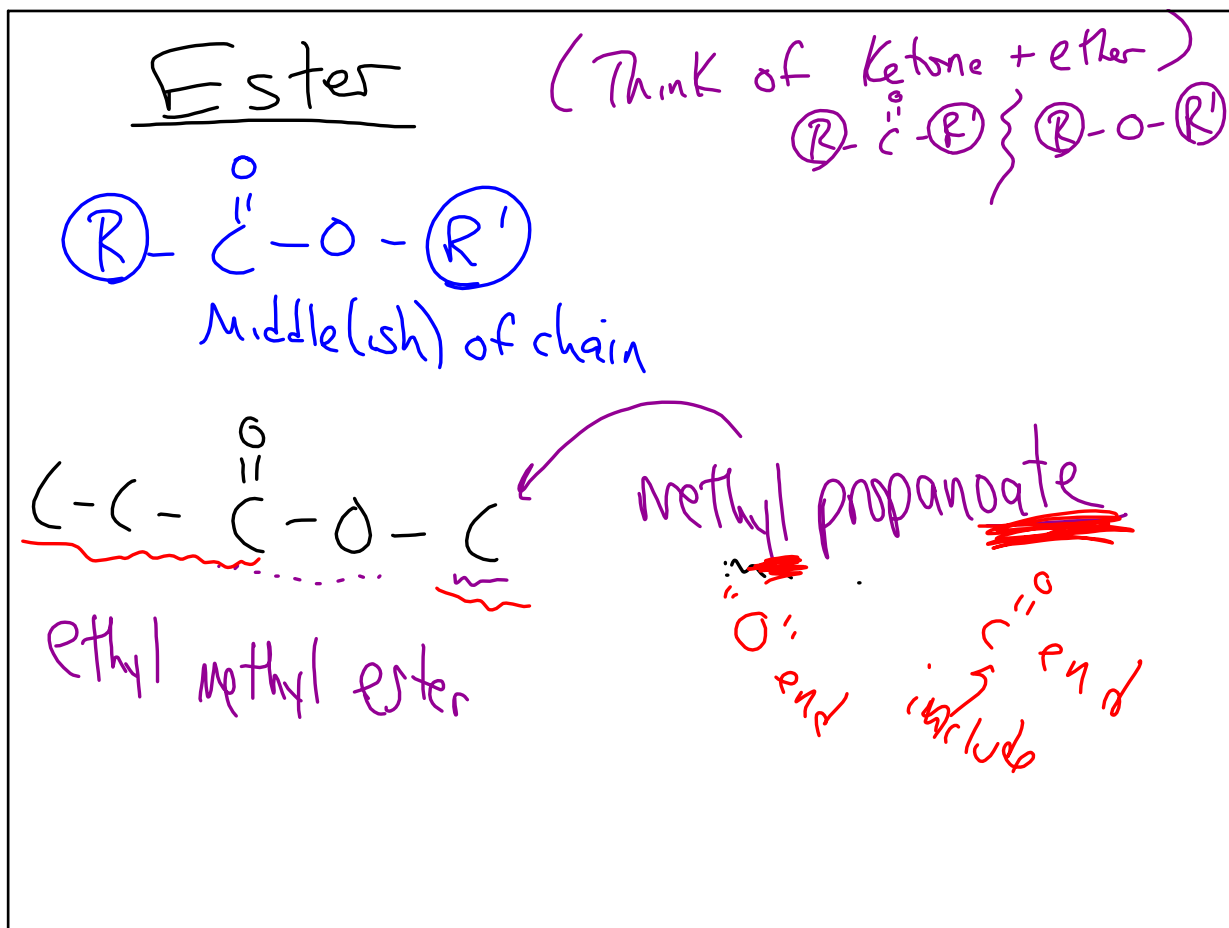 Ester
(Think of Ketone + ether)
O
R - C - R' } R - O - R'
O
R - C - O - R'
Middle(ish) of chain
O
C - C - C - O - C
methyl propanoate
ethyl methyl ester
O end
C = O end
include